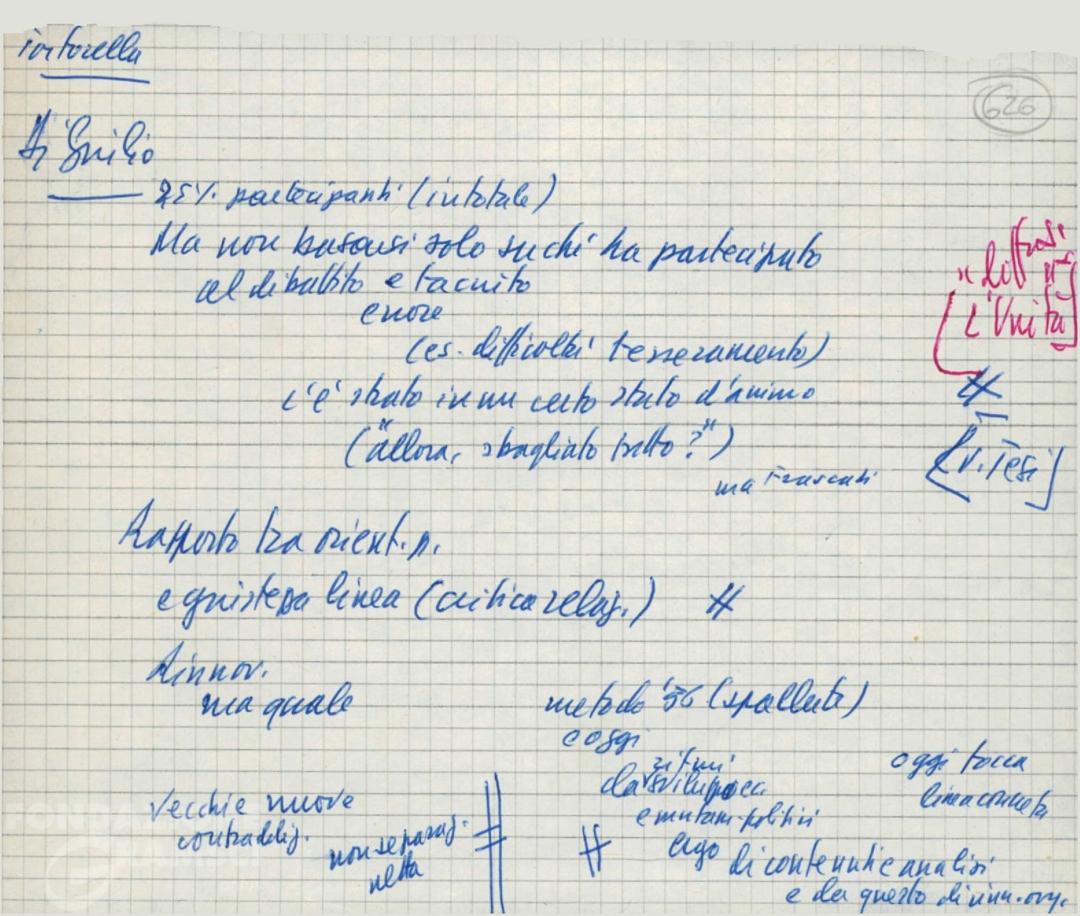 Tortorella
626
Di Giulio
25% partecipanti (in totale)
Ma non basarsi solo su chi ha partecipato
al dibattito e taciuto
errore
(es. difficoltà tesseramento)
c'è stato in un certo stato d'animo
("allora, sbagliato tutto?")
ma Frascati
L'Unità
#
[v. Tesi]
Rapporto tra orient. p.
e giustezza linea (critica relaz.) #
Rinnov.
ma quale
metodo '56 (spallate)
e oggi
ritmi
da sviluppo ec.
e mutam. politici
oggi tocca
linea concreta
Vecchie nuove
contraddiz.
non separaz.
netta
#
ergo di contenuti e analisi
e da questo di rinn. org.